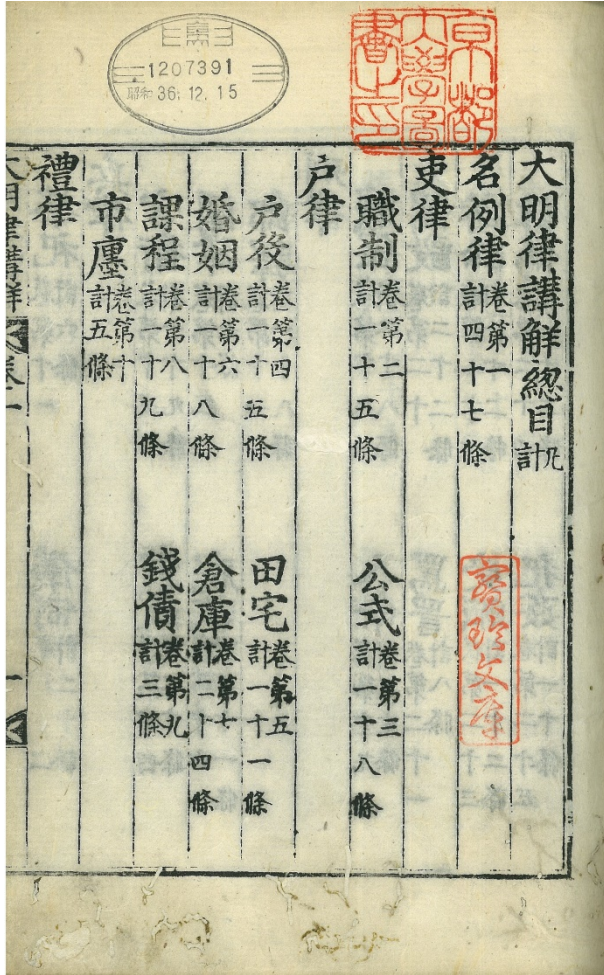 1207391
昭和36.12.15
京都
大學圖
書之印
大明律講解總目凡計
名例律卷第一計四十七條
寶玲文庫
吏律
職制卷第二計一十五條 公式卷第三計一十八條
户律
户役卷第四計一十五條 田宅卷第五計一十一條
婚姻卷第六計一十八條 倉庫卷第七計二十四條
課程卷第八計一十九條 錢債卷第九計三條
市廛卷第十計五條
禮律
大明律講解 一